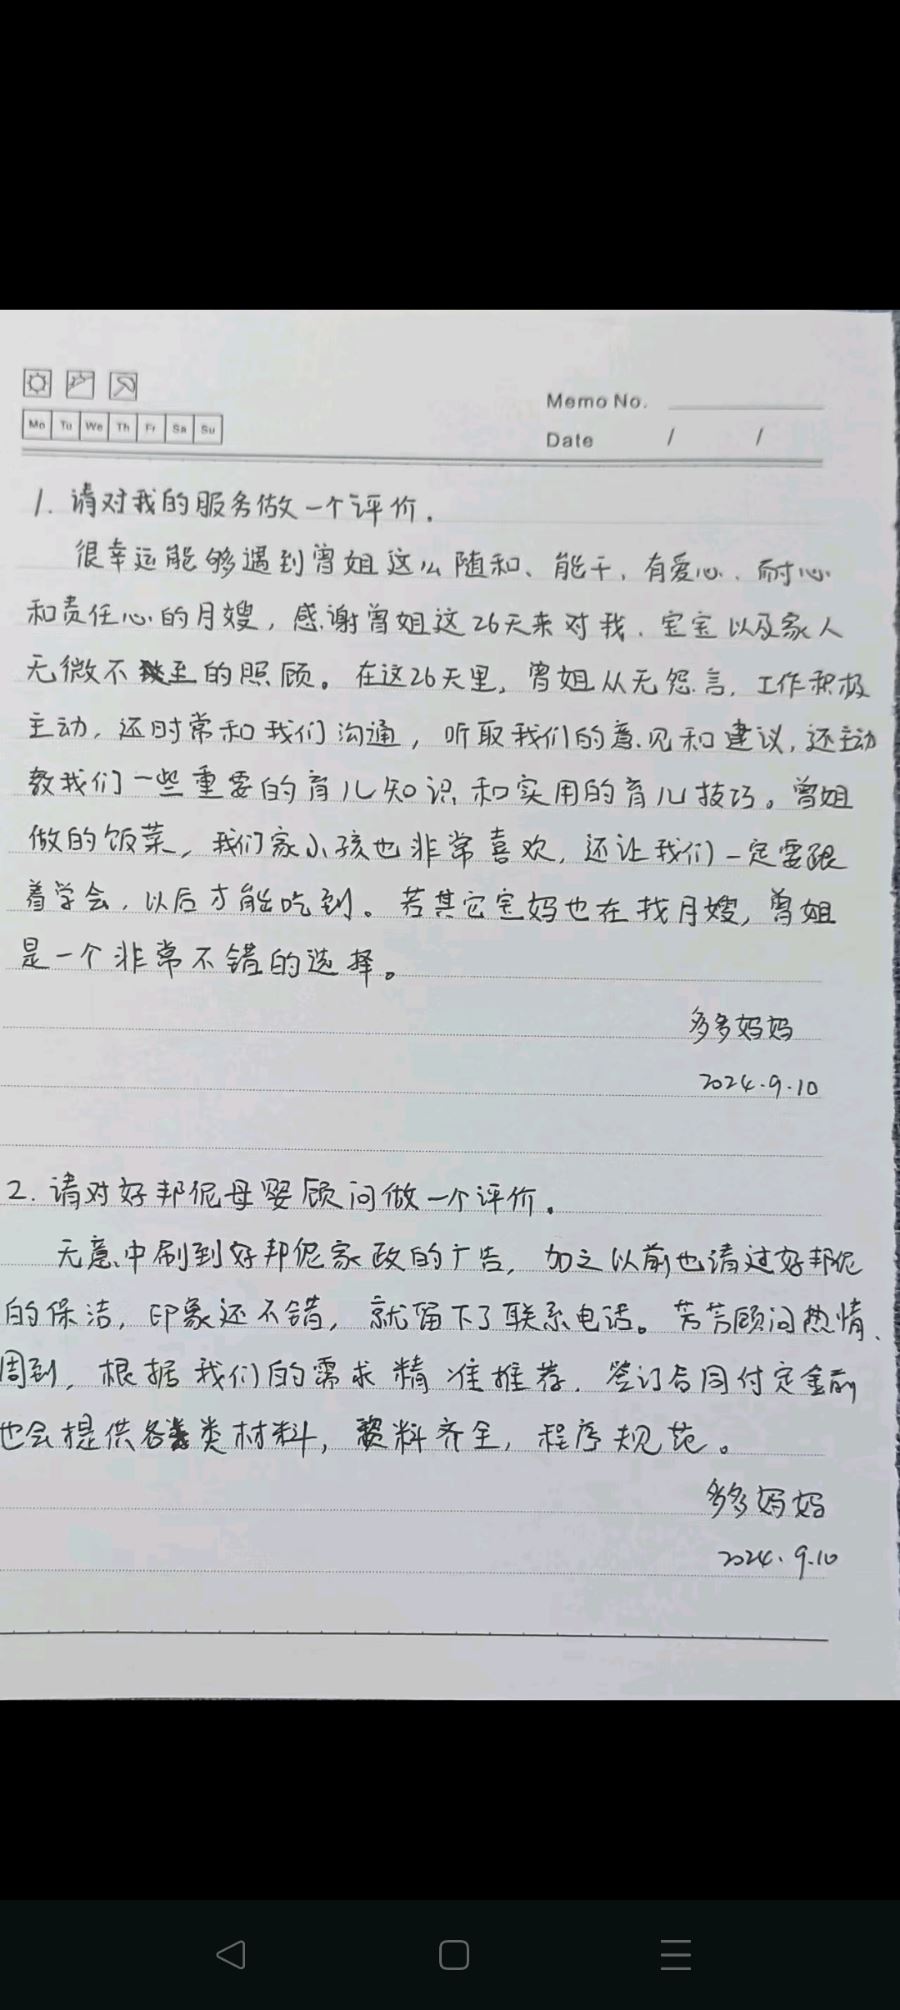 Mo Tu We Th Fr Sa Su
Memo No.
Date / /
1. 请对我的服务做一个评价.
很幸运能够遇到曾姐这么随和、能干、有爱心、耐心
和责任心的月嫂，感谢曾姐这26天来对我、宝宝以及家人
无微不至的照顾。在这26天里，曾姐从无怨言，工作积极
主动，还时常和我们沟通，听取我们的意见和建议，还主动
教我们一些重要的育儿知识和实用的育儿技巧。曾姐
做的饭菜，我们家小孩也非常喜欢，还让我们一定要跟
着学会，以后才能吃到。若其它宝妈也在找月嫂，曾姐
是一个非常不错的选择。
多多妈妈
2024.9.10
2. 请对好邦伲母婴顾问做一个评价。
无意中刷到好邦伲家政的广告，加之以前也请过好邦伲
的保洁，印象还不错，就留下了联系电话。芳芳顾问热情、
周到，根据我们的需求精准推荐，签订合同付定金前
也会提供各类材料，资料齐全，程序规范。
多多妈妈
2024.9.10